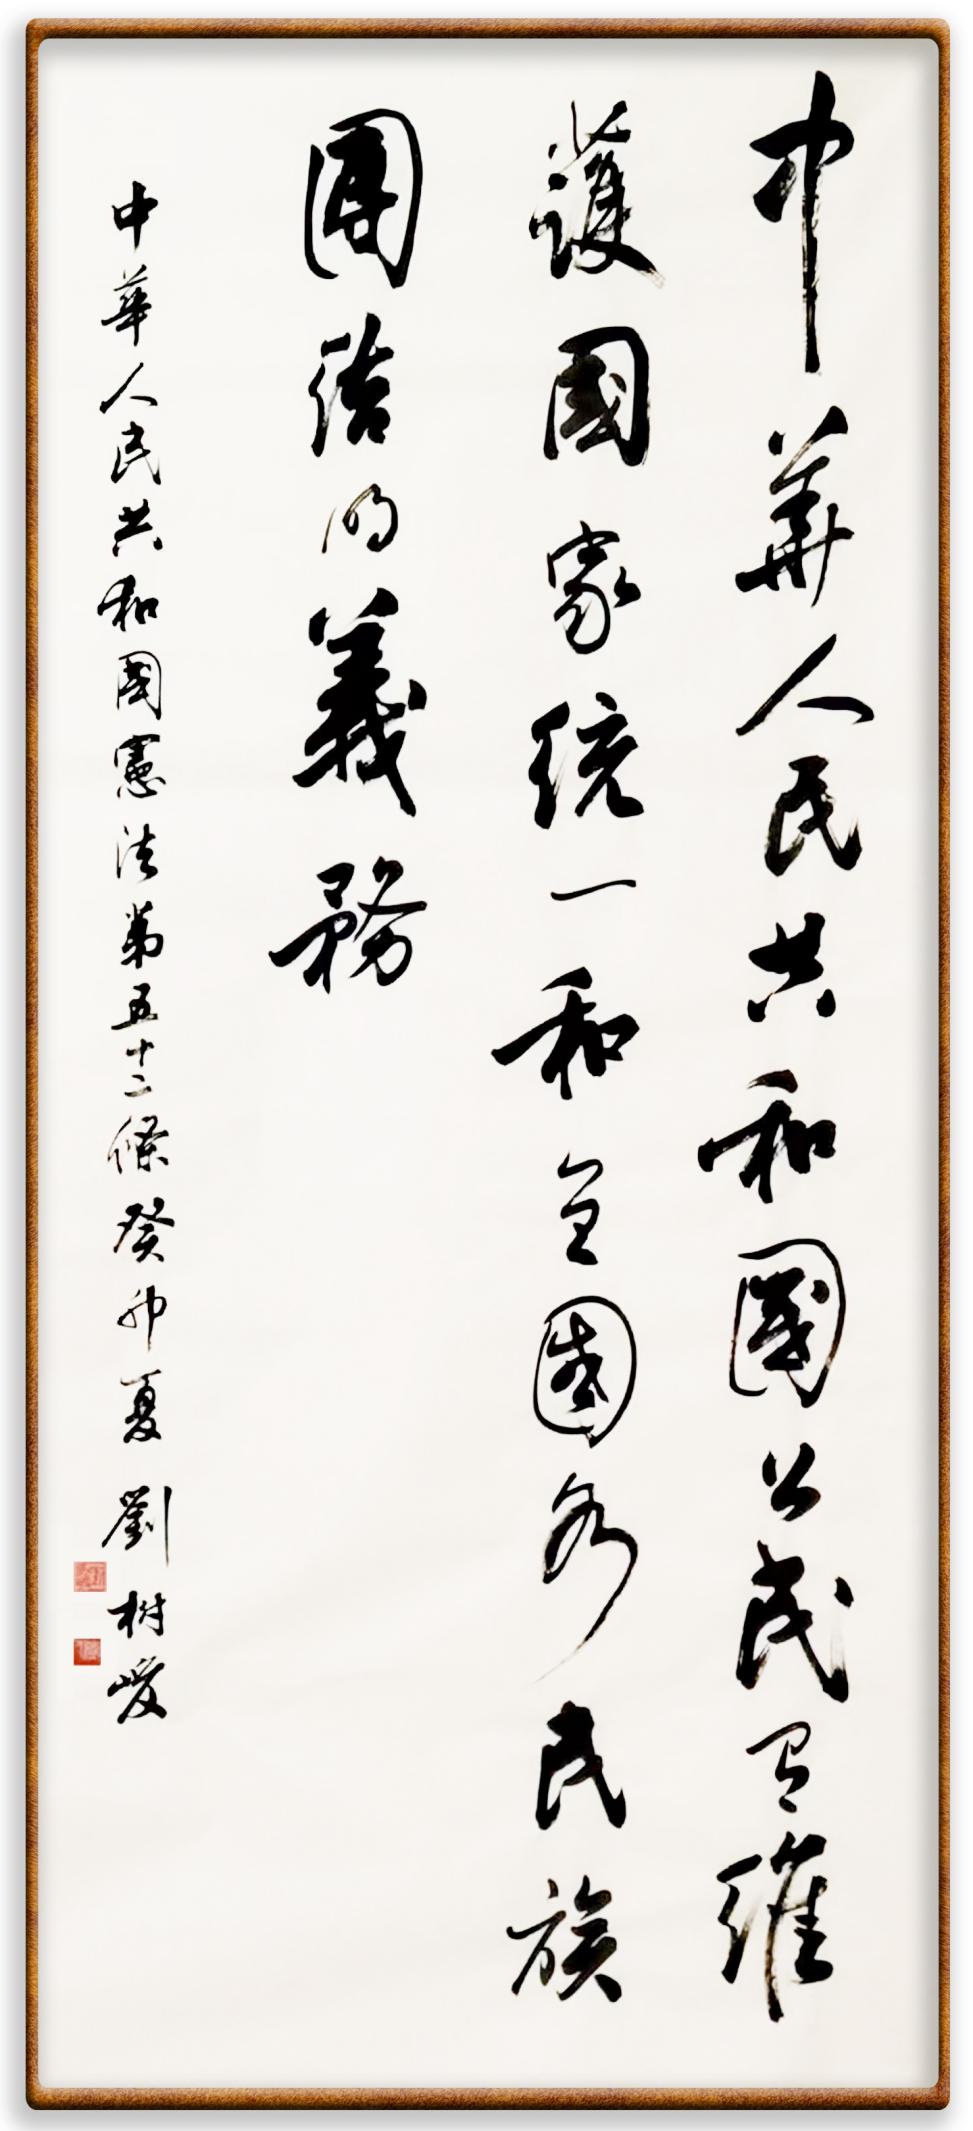 中華人民共和國公民有維
護國家統一和全國各民族
團結的義務
中華人民共和國憲法第五十二條癸卯夏劉樹峻